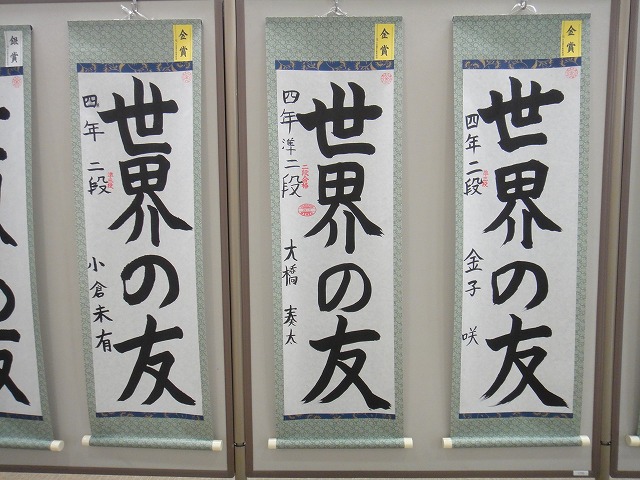 銀賞
金賞
世界の友
四年 二段
小倉未有
金賞
世界の友
四年 準二段
大橋 奏太
金賞
世界の友
四年 二段
金子 咲